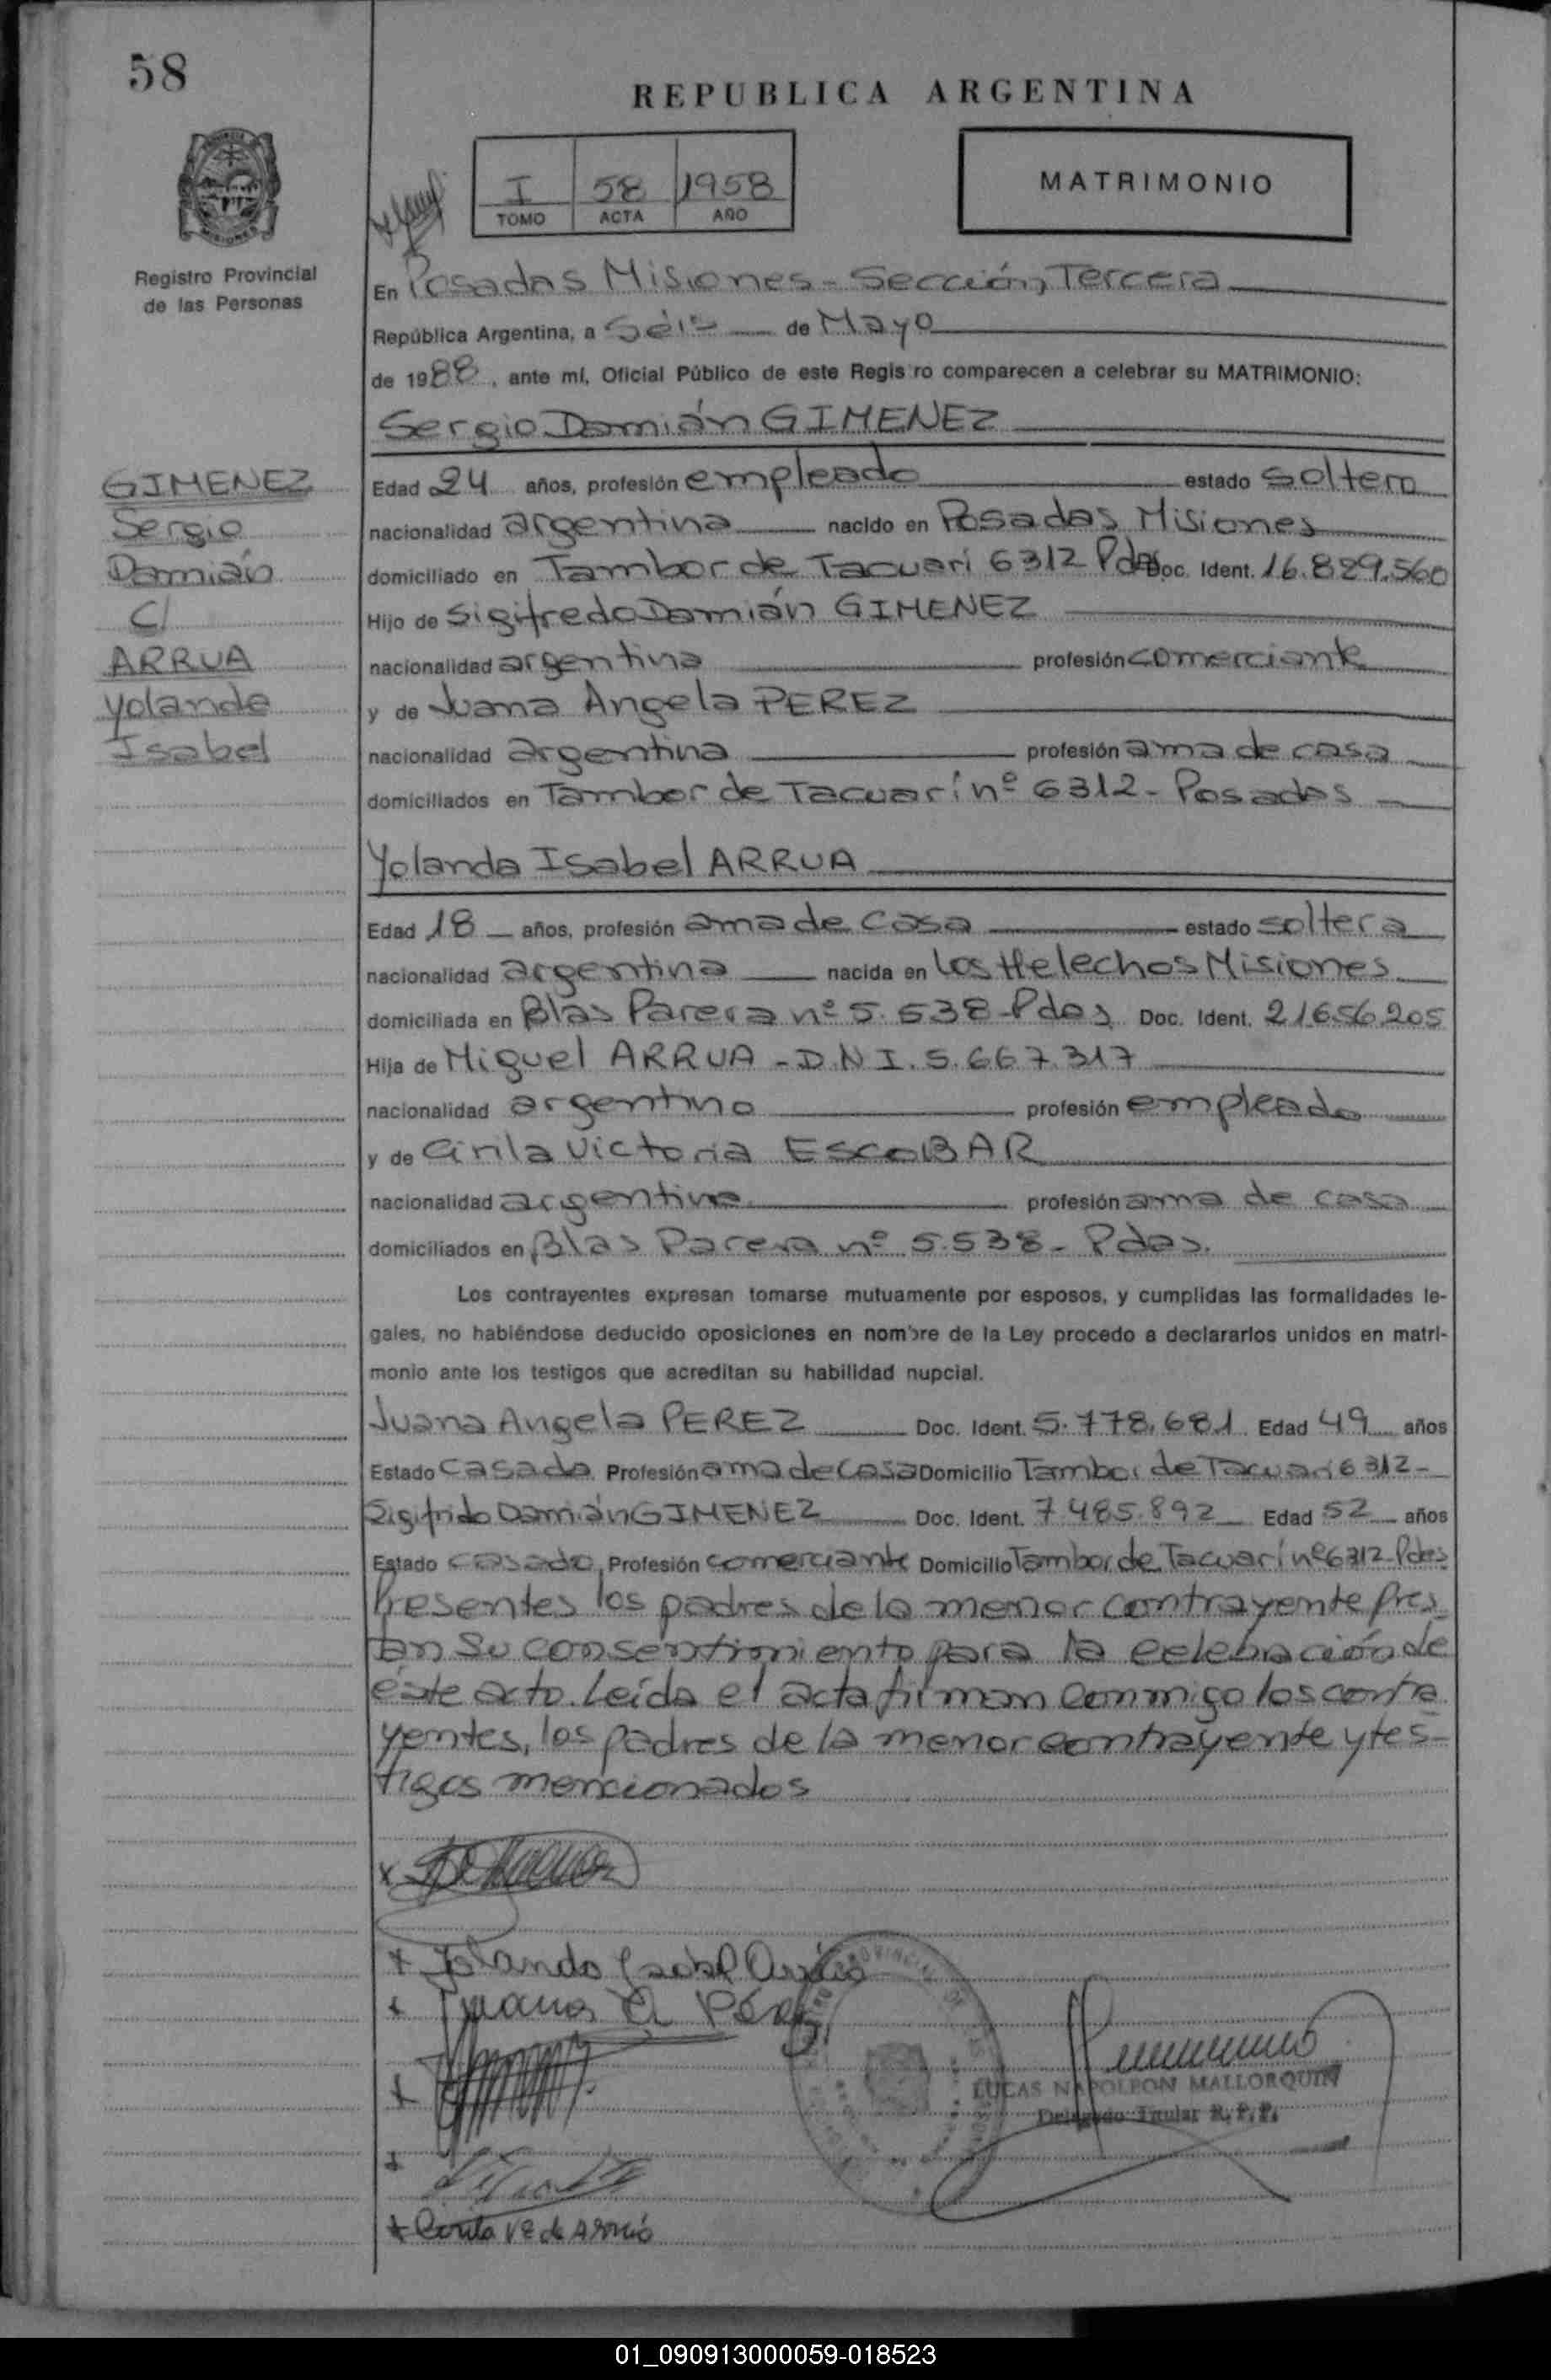 58
REPUBLICA ARGENTINA
MISIONES
Registro Provincial
de las Personas
I 58 1958
TOMO ACTA AÑO
MATRIMONIO
En Posadas Misiones - Sección Tercera
República Argentina, a Séis de Mayo
de 1988, ante mí, Oficial Público de este Regis ro comparecen a celebrar su MATRIMONIO:
Sergio Damián GIMENEZ
GIMENEZ
Sergio
Damián
C/
ARRUA
Yolanda
Isabel
Edad 24 años, profesión empleado estado soltero
nacionalidad argentina nacido en Posadas Misiones
domiciliado en Tambor de Tacuarí 6312 Pdas Doc. Ident. 16.829.560
Hijo de Sigifredo Damián GIMENEZ
nacionalidad argentina profesión comerciante
y de Juana Angela PEREZ
nacionalidad argentina profesión ama de casa
domiciliados en Tambor de Tacuarí nº 6312 - Posadas
Yolanda Isabel ARRUA
Edad 18 años, profesión ama de casa estado soltera
nacionalidad argentina nacida en Los Helechos Misiones
domiciliada en Blas Parera nº 5.538 - Pdas Doc. Ident. 21.656.205
Hija de Miguel ARRUA - D.N.I. 5.667.317
nacionalidad argentino profesión empleado
y de Cirila Victoria ESCOBAR
nacionalidad argentina profesión ama de casa
domiciliados en Blas Parera nº 5.538 - Pdas.
Los contrayentes expresan tomarse mutuamente por esposos, y cumplidas las formalidades le-
gales, no habiéndose deducido oposiciones en nombre de la Ley procedo a declararlos unidos en matri-
monio ante los testigos que acreditan su habilidad nupcial.
Juana Angela PEREZ Doc. Ident. 5.778.681 Edad 49 años
Estado Casada Profesión ama de casa Domicilio Tambor de Tacuari 6312 -
Sigifrido Damián GIMENEZ Doc. Ident. 7.485.892 Edad 52 años
Estado casado, Profesión comerciante Domicilio Tambor de Tacuarí nº 6312 - Pdas
Presentes los padres de la menor contrayente pres
tan su consentimiento para la celebración de
éste acto. Leída el acta firman conmigo los contra
yentes, los padres de la menor contrayente y tes-
tigos mencionados
Yolanda Isabel Arrúa
Juana A Pérez
LUCAS NAPOLEON MALLORQUIN
Delegado Titular R. P. P.
Cirila VE de Arrúa
01_090913000059-018523